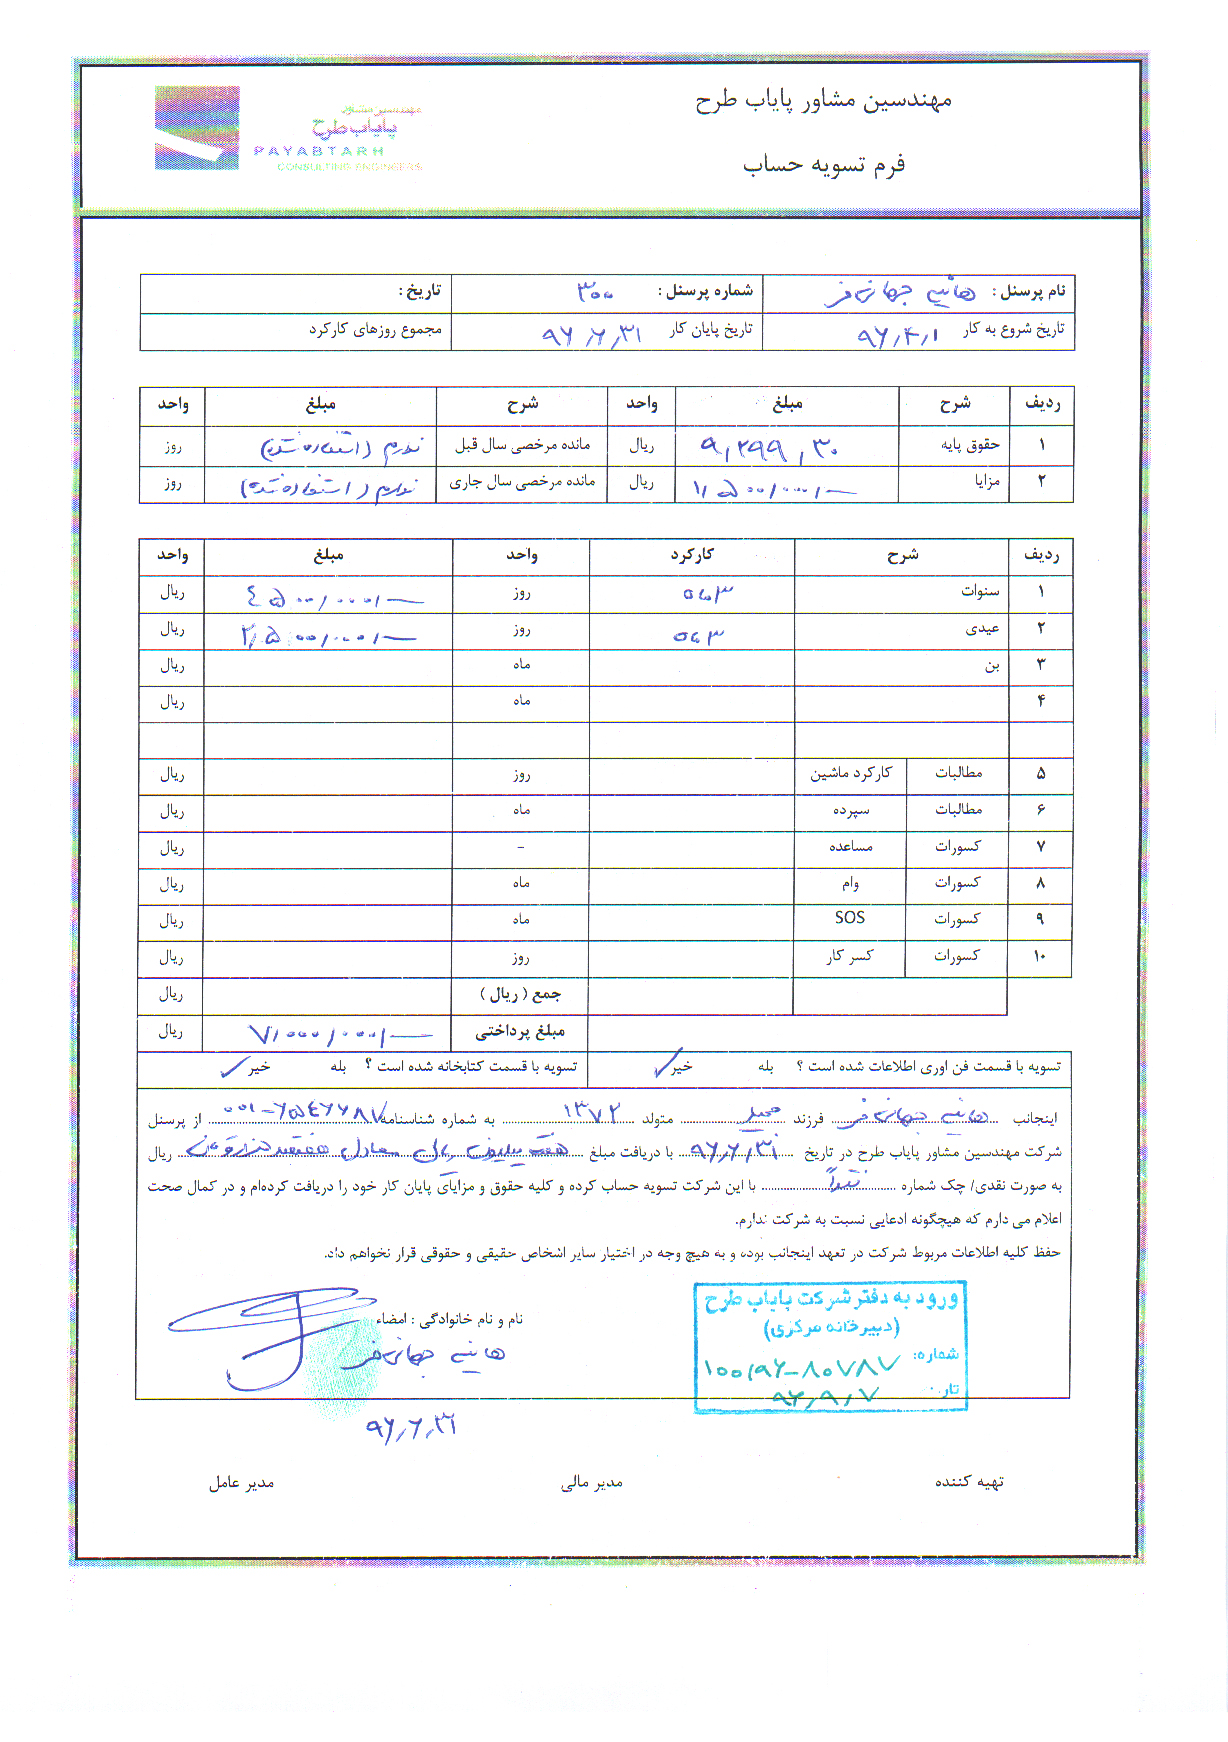 مهندسین مشاور پایاب طرح
فرم تسویه حساب
مهندسین مشاور
پایاب طرح
PAYABTARH
CONSULTING ENGINEERS
نام پرسنل : هانیه جهانی فر شماره پرسنل : ۳۰۰ تاریخ :
تاریخ شروع به کار ۹۶,۴,۱ تاریخ پایان کار ۹۶,۶,۳۱ مجموع روزهای کارکرد
ردیف شرح مبلغ واحد شرح مبلغ واحد
۱ حقوق پایه ۹,۲۹۹,۳۰ ریال مانده مرخصی سال قبل ندارم (استفاده شده) روز
۲ مزایا ۱,۵۰۰/۰۰۰/- ریال مانده مرخصی سال جاری ندارم (استفاده شده) روز
ردیف شرح کارکرد واحد مبلغ واحد
۱ سنوات روز ۴۵۰۰/۰۰۰/- ریال
۲ عیدی روز ۲,۵۰۰/۰۰۰/- ریال
۳ بن ماه ریال
۴ ماه ریال
۵ مطالبات کارکرد ماشین روز ریال
۶ مطالبات سپرده ماه ریال
۷ کسورات مساعده - ریال
۸ کسورات وام ماه ریال
۹ کسورات SOS ماه ریال
۱۰ کسورات کسر کار روز ریال
جمع ( ریال ) ریال
مبلغ پرداختی ۷/۰۰۰/۰۰۰/- ریال
تسویه با قسمت فن اوری اطلاعات شده است ؟ بله خیر ✓ تسویه با قسمت کتابخانه شده است ؟ بله خیر ✓
اینجانب هانیه جهانی فر فرزند متولد ۱۳۷۲ به شماره شناسنامه ۰۰۱-۶۵۴۶۶۸۷ از پرسنل
شرکت مهندسین مشاور پایاب طرح در تاریخ ۹۶,۶,۳۱ با دریافت مبلغ هفت میلیون ریال معادل هفتصد هزار تومان ریال
به صورت نقدی/ چک شماره نقداً با این شرکت تسویه حساب کرده و کلیه حقوق و مزایای پایان کار خود را دریافت کرده‌ام و در کمال صحت
اعلام می دارم که هیچگونه ادعایی نسبت به شرکت ندارم.
حفظ کلیه اطلاعات مربوط شرکت در تعهد اینجانب بوده و به هیچ وجه در اختیار سایر اشخاص حقیقی و حقوقی قرار نخواهم داد.
نام و نام خانوادگی : امضاء
هانیه جهانی فر
۹۶,۶,۳۱
ورود به دفتر شرکت پایاب طرح
(دبیرخانه مرکزی)
شماره: ۱۰۰/۹۶-۸۰۷۸۷
تار ۹۶,۹,۷
تهیه کننده مدیر مالی مدیر عامل